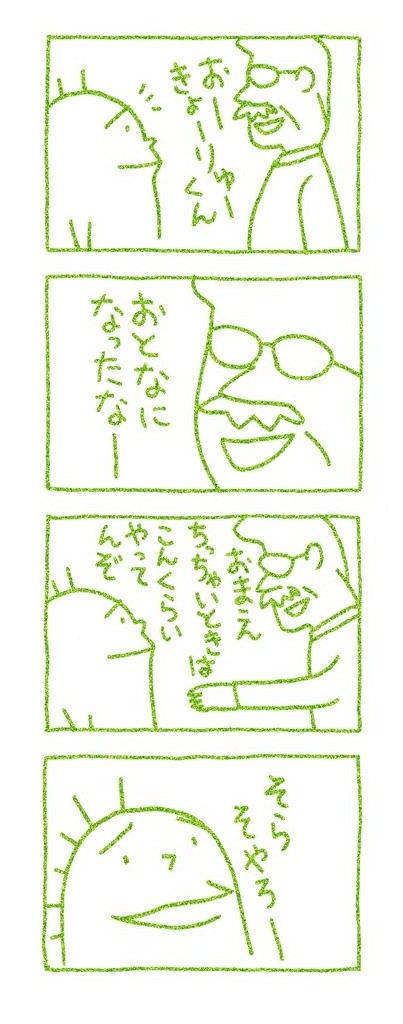 おーりゅー
きょーりくん
おとなに
なったなー
おまえ
ちっちゃいときは
こんくらい
やって
んぞ
そら
そやろー